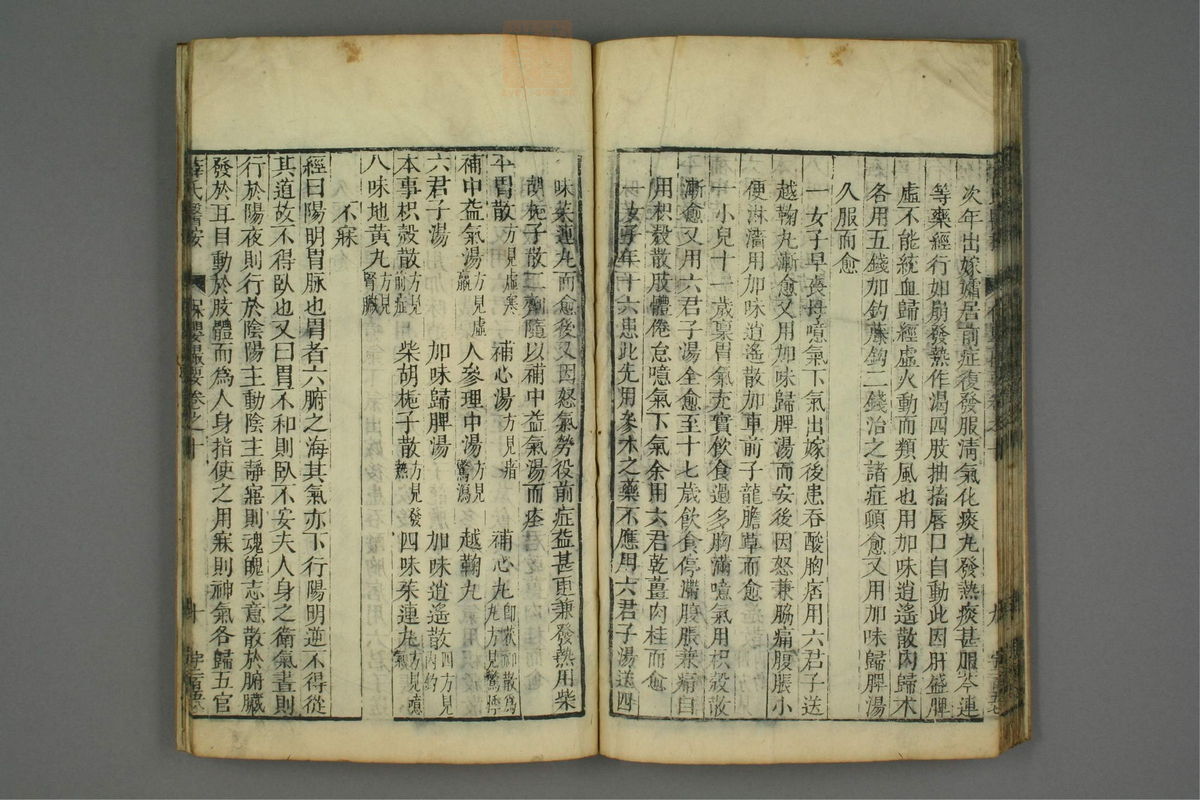 次年出嫁孀居前症復發服清氣化痰丸發熱痰甚服芩連
等藥經行如崩發熱作渴四肢抽搐唇口自動此因肝盛脾
虛不能統血歸經虛火動而類風也用加味逍遙散內歸木
各用五錢加鈎藤鈎二錢治之諸症頓愈又用加味歸脾湯
久服而愈
一女子早喪母噫氣下氣出嫁後患吞酸胸痞用六君子送
越鞠丸漸愈又用加味歸脾湯而安後因怒兼脇痛腹脹小
便淋濇用加味逍遙散加車前子龍膽草而愈
一小兒十一歲稟胃氣充實飲食過多胸滿噫氣用枳殼散
漸愈又用六君子湯全愈至十七歲飲食停滯腹脹兼痛自
用枳殼散肢體倦怠噫氣下氣余用六君乾薑肉桂而愈
一女子年十六患此先用參朮之藥不應用六君子湯送四
味茱連丸而愈後又因怒氣勞役前症益甚更兼發熱用柴
胡梔子散二劑隨以補中益氣湯而痊
平胃散方見虛寒 補心湯方見痛 補心丸即 散爲丸方見驚悸
補中益氣湯方見虛羸 人參理中湯方見驚瀉 越鞠丸
六君子湯 加味歸脾湯 加味逍遙散四方見內釣
本事枳殼散前症 柴胡梔子散方見發熱 四味茱連丸方見噫氣
八味地黃丸方見腎臟
不寐
經曰陽明胃脉也胃者六腑之海其氣亦下行陽明逆不得從
其道故不得臥也又曰胃不和則臥不安夫人身之衛氣晝則
行於陽夜則行於陰陽主動陰主靜寤則魂魄志意散於腑臟
發於耳目動於肢體而爲人身指使之用寐則神氣各歸五官
薛氏醫按 保嬰撮要卷之十 十